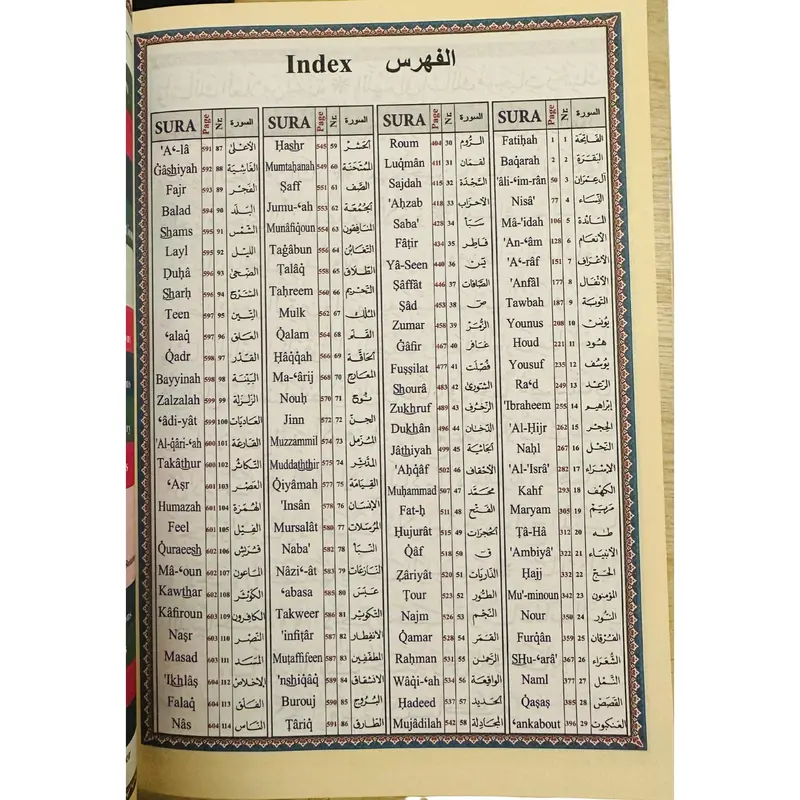 Index الفهرس
SURA Page Nr. السورة
Fatiḥah 1 1 الفَاتِحَة
Baqarah 2 2 البَقَرَة
'âli-'im-rân 50 3 آل عِمرَان
Nisâ' 77 4 النِّسَاء
Mâ-'idah 106 5 المَائدة
'An-'âm 128 6 الأنعَام
'A'-râf 151 7 الأعرَاف
'Anfâl 177 8 الأنفَال
Tawbah 187 9 التوبَة
Younus 208 10 يُونس
Houd 221 11 هُود
Yousuf 235 12 يُوسُف
Ra'd 249 13 الرّعد
'Ibraheem 255 14 إبراهيم
'Al-Ḥijr 262 15 الحِجر
Naḥl 267 16 النّحل
'Al-'Isrâ' 282 17 الإسرَاء
Kahf 293 18 الكهف
Maryam 305 19 مَريَم
Ṭâ-Hâ 312 20 طه
'Ambiyâ' 322 21 الأنبيَاء
Ḥajj 332 22 الحَج
Mu'-minoun 342 23 المؤمنون
Nour 350 24 النُّور
Furqân 359 25 الفُرقان
SHu-'arâ' 367 26 الشُّعَرَاء
Naml 377 27 النَّمل
Qaṣaṣ 385 28 القَصَص
'ankabout 396 29 العَنكبوت
SURA Page Nr. السورة
Roum 404 30 الرُّوم
Luqmân 411 31 لقمَان
Sajdah 415 32 السَّجْدَة
'Aḥzab 418 33 الأحزَاب
Saba' 428 34 سَبَأ
Fâṭir 434 35 فَاطِر
Yâ-Seen 440 36 يس
Ṣâffât 446 37 الصَّافات
Ṣâd 453 38 ص
Zumar 458 39 الزُّمَر
Ġâfir 467 40 غَافر
Fuṣṣilat 477 41 فُصِّلَت
Shourâ 483 42 الشّورى
Zukhruf 489 43 الزّخرُف
Dukhân 496 44 الدّخان
Jâthiyah 499 45 الجَاثية
'Aḥqâf 502 46 الأحقاف
Muḥammad 507 47 محَمَّد
Fat-ḥ 511 48 الفَتْح
Ḥujurât 515 49 الحُجرَات
Qâf 518 50 ق
Ẕâriyât 520 51 الذّاريَات
Ṭour 523 52 الطُّور
Najm 526 53 النَّجْم
Qamar 528 54 القَمَر
Raḥman 531 55 الرَّحمن
Wâqi-'ah 534 56 الواقِعَة
Ḥadeed 537 57 الحَديد
Mujâdilah 542 58 المجَادلة
SURA Page Nr. السورة
Ḥashr 545 59 الحَشْر
Mumtaḥanah 549 60 المُمتَحَنَة
Ṣaff 551 61 الصَّف
Jumu-'ah 553 62 الجُمُعَة
Munâfiqoun 554 63 المنَافِقون
Taġâbun 556 64 التغَابُن
Ṭalâq 558 65 الطَّلَاق
Taḥreem 560 66 التَّحْريم
Mulk 562 67 المُلْك
Qalam 564 68 القَلَم
Ḥâqqah 566 69 الحَاقَّة
Ma-'ârij 568 70 المعَارج
Nouḥ 570 71 نُوح
Jinn 572 72 الجِنّ
Muzzammil 574 73 المُزمّل
Muddaththir 575 74 المدَّثِّر
Qiyâmah 577 75 القِيَامَة
'Insân 578 76 الإنسَان
Mursalât 580 77 المُرسَلات
Naba' 582 78 النَّبَأ
Nâzi-'ât 583 79 النَّازعَات
'abasa 585 80 عَبَسَ
Takweer 586 81 التكوير
'infiṭâr 587 82 الانفِطار
Muṭaffifeen 587 83 المطَفّفِين
'nshiqâq 589 84 الانشقاق
Burouj 590 85 البُرُوج
Ṭâriq 591 86 الطّارق
SURA Page Nr. السورة
'A'-lâ 591 87 الأعْلى
Ġâshiyah 592 88 الغَاشِيَة
Fajr 593 89 الفَجْر
Balad 594 90 البَلَد
Shams 595 91 الشَّمْس
Layl 595 92 الليل
Ḍuḥâ 596 93 الضّحَى
Sharḥ 596 94 الشَّرْح
Teen 597 95 التِّين
'alaq 597 96 العَلَق
Qadr 598 97 القَدْر
Bayyinah 598 98 البَيّنَة
Zalzalah 599 99 الزّلزَلة
'âdi-yât 599 100 العَاديَات
'Al-qâri-'ah 600 101 القارعَة
Takâthur 600 102 التكاثُر
'Aṣr 601 103 العَصْر
Humazah 601 104 الهُمَزة
Feel 601 105 الفِيْل
Quraeesh 602 106 قُرَيْش
Mâ-'oun 602 107 الماعون
Kawthar 602 108 الكَوْثَر
Kâfiroun 603 109 الكافِرون
Naṣr 603 110 النَّصْر
Masad 603 111 المَسَد
'Ikhlâṣ 604 112 الإخلاص
Falaq 604 113 الفَلَق
Nâs 604 114 النَّاس